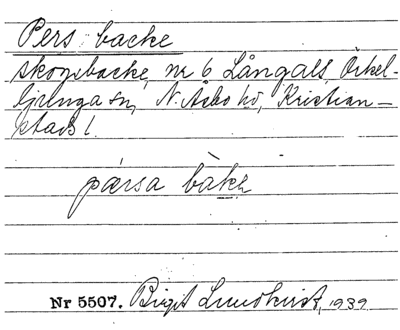 Pers backe
skogsbacke, nr 6 Långalt, Örkel-
ljunga sn, N. Åsbo hd, Kristian-
stads l.
pærsa bàkɛ
Nr 5507. Birgit Lundkvist, 1939